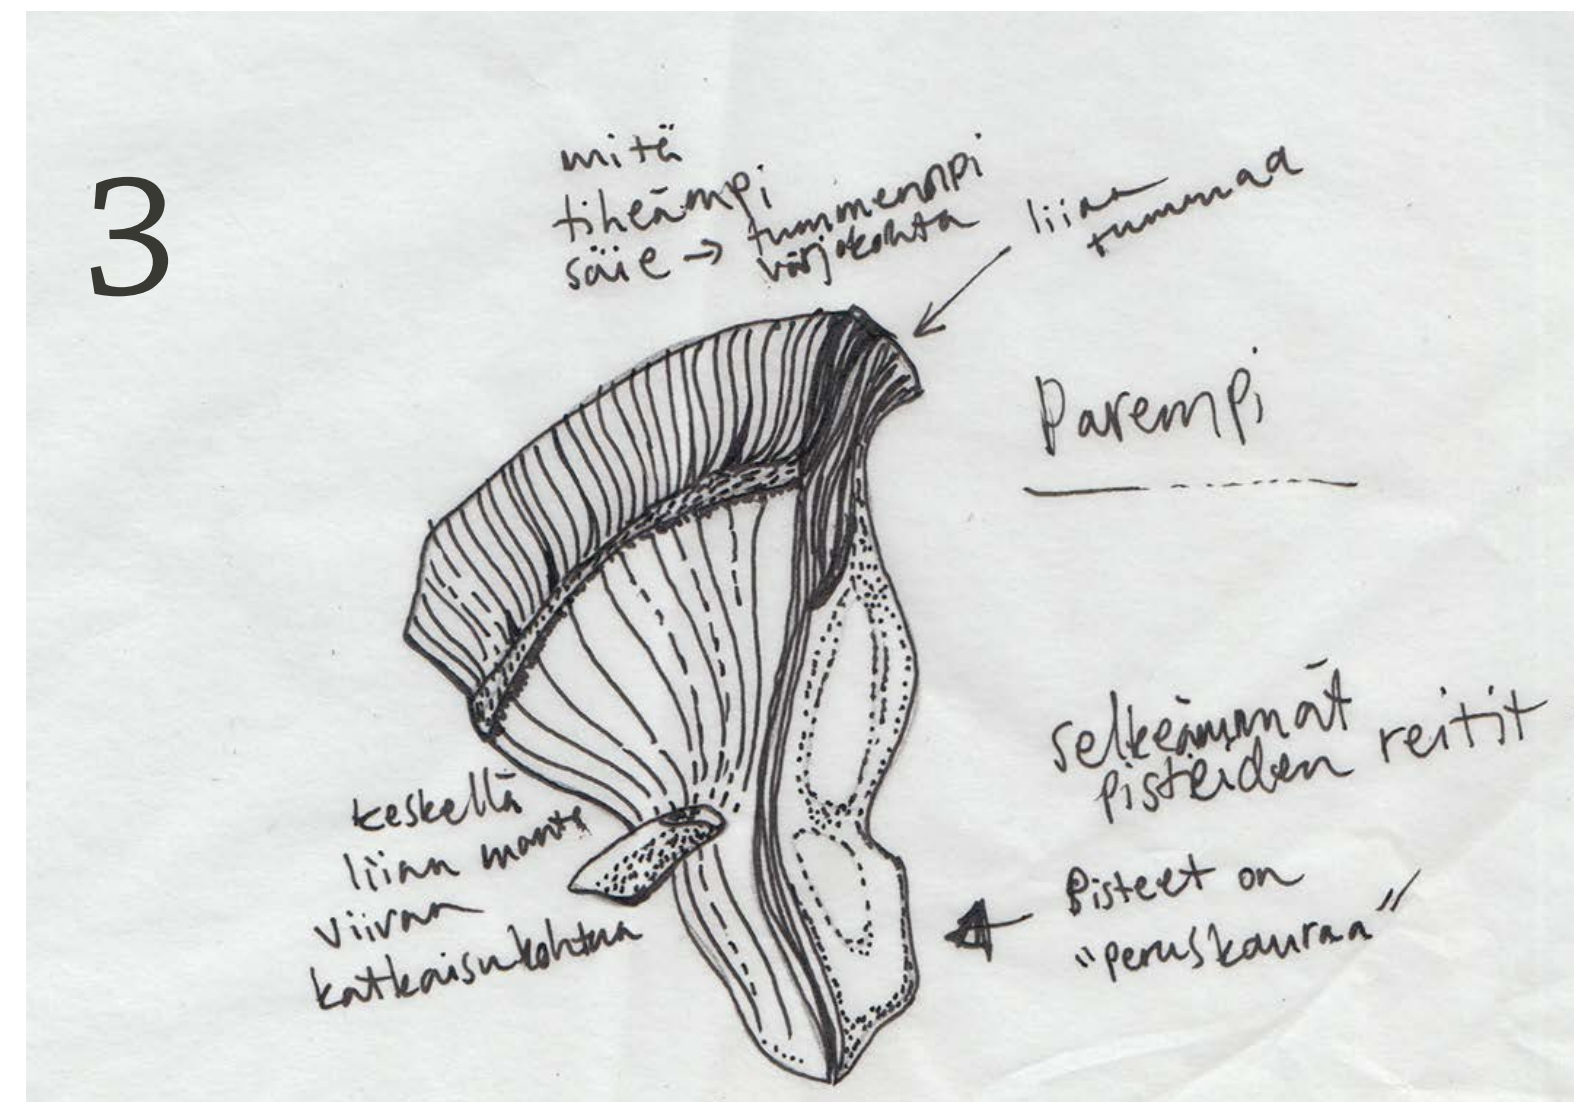 3
mitä
tiheämpi
säie → tummempi
värjokohta
liian
tummaa
Parempi
selkeämmät
pisteiden reitit
keskellä
liian monta
viivan
katkaisukohtaa
Pisteet on
"peruskauraa"